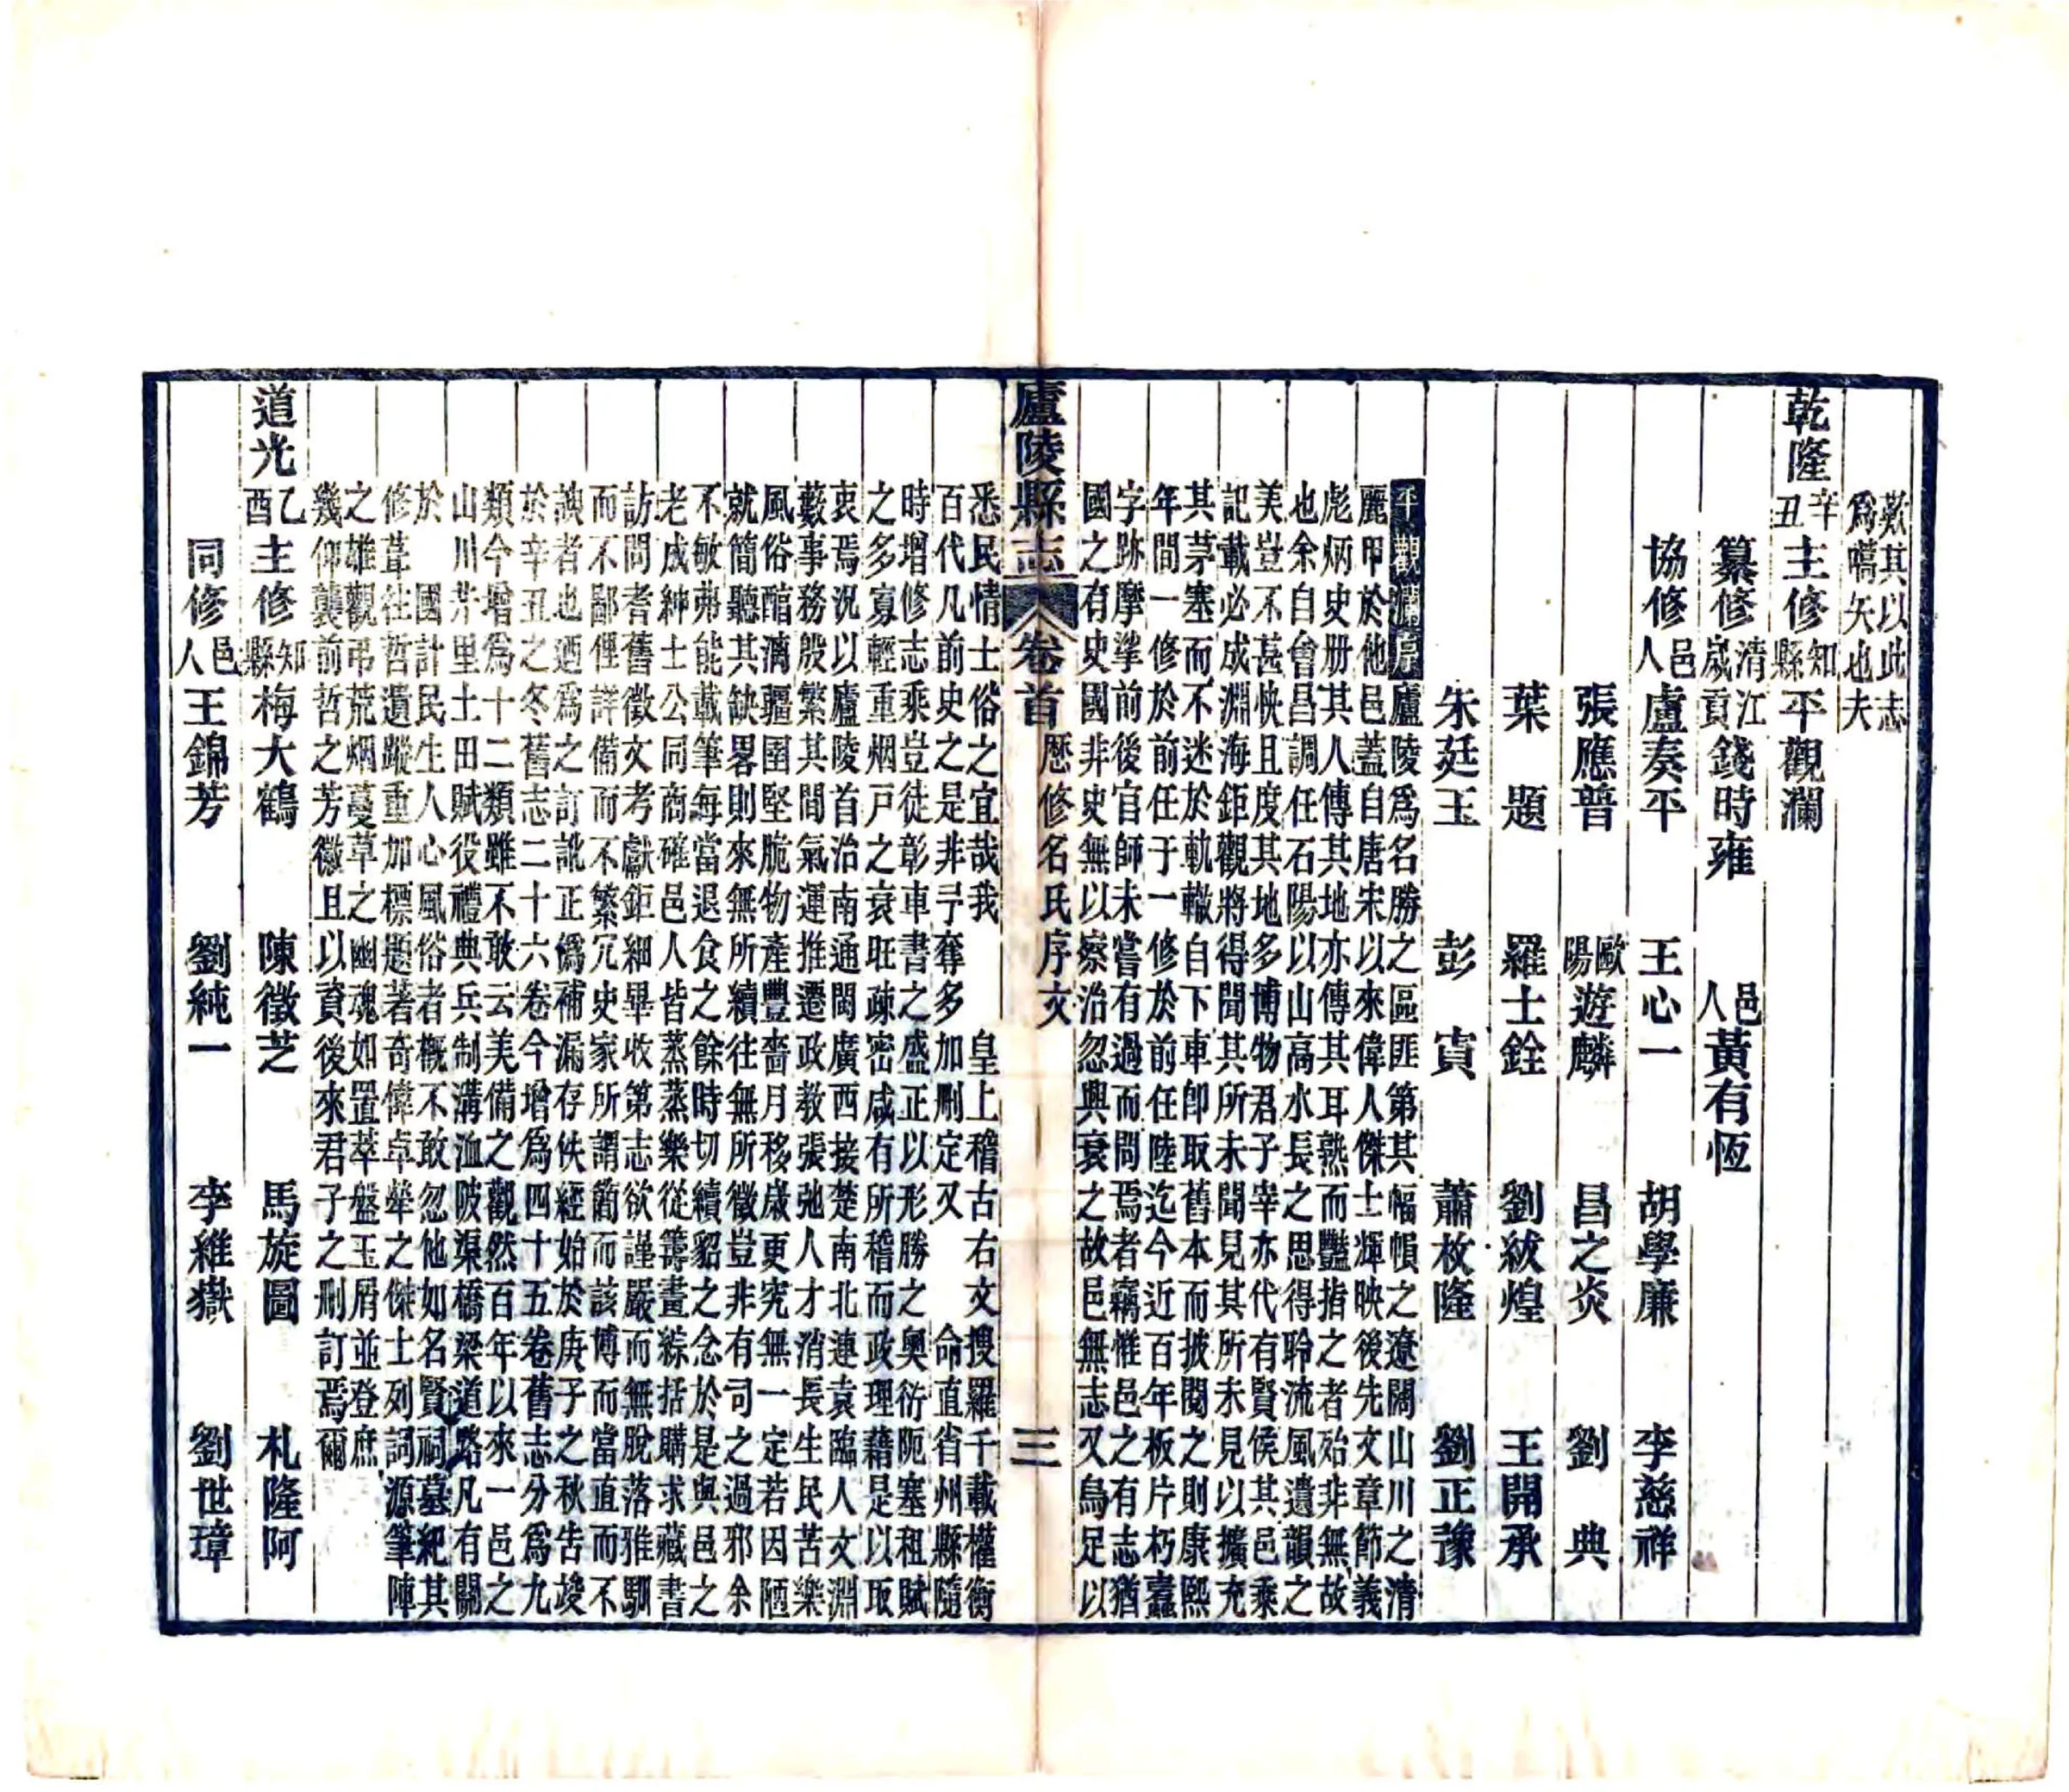 歎其以此志
爲嚆矢也夫
乾隆辛丑主修知縣平觀瀾
纂修清江歲貢錢時雍 邑人黃有恆
協修邑人盧奏平 王心一 胡學廉 李慈祥
張應普 歐陽遊麟 昌之炎 劉典
葉題 羅士銓 劉紱煌 王開承
朱廷玉 彭寅 蕭枚隆 劉正豫
平觀瀾序廬陵爲名勝之區匪第其幅幀之遼闊山川之清
麗甲於他邑蓋自唐宋以來偉人傑士輝映後先文章節義
彪炳史册其人傳其地亦傳其耳熟而豔指之者殆非無故
也余自會昌調任石陽以山高水長之思得聆流風遺韻之
美豈不甚快且度其地多博物君子宰亦代有賢侯其邑乘
記載必成淵海鉅觀將得聞其所未聞見其所未見以擴充
其茅塞而不迷於軌轍自下車卽取舊本而披閱之則康熙
年間一修於前任于一修於前任陸迄今近百年板片朽蠹
字跡摩挲前後官師未嘗有過而問焉者竊惟邑之有志猶
國之有史國非史無以察治忽與衰之故邑無志又烏足以
廬陵縣志 卷首 歷修名氏序文 三
悉民情士俗之宜哉我 皇上稽古右文搜羅千載權衡
百代凡前史之是非予奪多加刪定又 命直省州縣隨
時增修志乘豈徒彰車書之盛正以形勝之奧衍阨塞租賦
之多寡輕重烟戸之衰旺疎密咸有所稽而政理藉是以取
衷焉況以廬陵首治南通閩廣西接楚南北連袁臨人文淵
藪事務殷繁其間氣運推遷政教張弛人才消長生民苦樂
風俗醇漓疆圉堅脆物產豐嗇月移歲更究無一定若因陋
就簡聽其缺畧則來無所續往無所徵豈非有司之過邪余
不敏弗能載筆每當退食之餘時切續貂之念於是與邑之
老成紳士公同商確邑人皆蒸蒸樂從籌畫綜括購求藏書
訪問耆舊徵文考獻鉅細畢收第志欲謹嚴而無脫落雅馴
而不鄙俚詳備而不繁冗史家所謂簡而該博而當直而不
諛者也迺爲之訂訛正僞補漏存佚經始於庚子之秋吿竣
於辛丑之冬舊志二十六卷今增爲四十五卷舊志分爲九
類今增爲十二類雖不敢云美備之觀然百年以來一邑之
山川井里土田賦役禮典兵制溝洫陂渠橋梁道路凡有關
於 國計民生人心風俗者槪不敢忽他如名賢祠墓紀其
修葺往哲遺蹤重加標題著奇偉卓犖之傑士列詞源筆陣
之雄觀弔荒烟蔓草之幽魂如置萃盤玉屑並登庶
幾仰襲前哲之芳徽且以資後來君子之刪訂焉爾
道光乙酉主修知縣梅大鶴 陳徵芝 馬旋圖 札隆阿
同修邑人王錦芳 劉純一 李維嶽 劉世璋